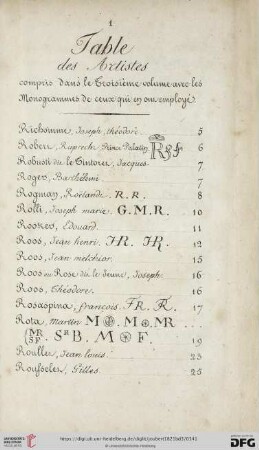 1
Table
des Artistes
compris dans le Troisième volume avec les
Monogrammes de ceux qui en ont employé
Richomme, Joseph théodore 5
Robert, Ruprecht Prince Palatin 6
Robusti dit le Tintoret, Jacques 7
Roger, Barthélemi 7
Rogman, Roëlandt. R.R. 8
Rolli, Joseph marie. G.M.R. 10
Rookers, Edouard 11
Roos, Jean henri. HR. HR. 12
Roos, Jean melchior 15
Roos ou Rose dit le Jeune, Joseph 16
Roos, Théodore 16
Rosaspina, françois. FR. FR. 17
Rota, Martin M M MR
MR SF. SRB. M F. 19
Roullet, Jean louis. 23
Rousselet, Gilles 25
https://digi.ub.uni-heidelberg.de/diglit/joubert1821bd3/0141
© Universitätsbibliothek Heidelberg